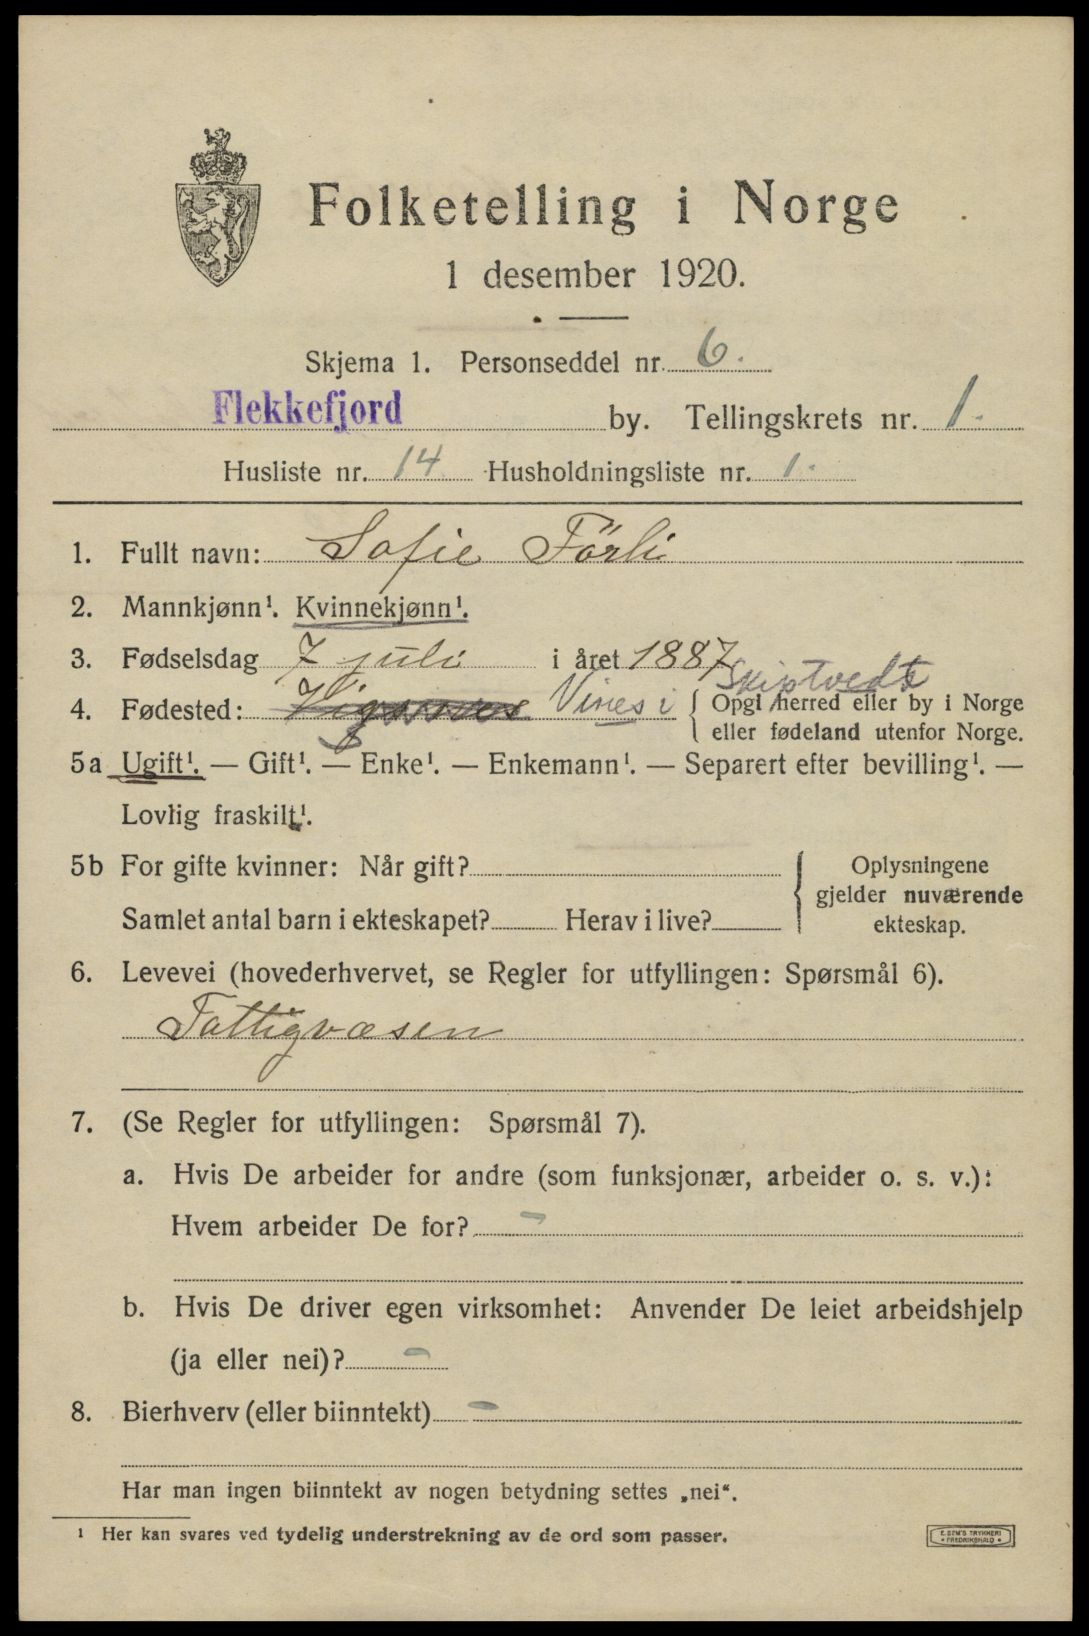 Folketelling i Norge
1 desember 1920.
Skjema 1. Personseddel nr. 6.
Flekkefjord by. Tellingskrets nr. 1.
Husliste nr. 14 Husholdningsliste nr. 1.
1. Fullt navn: Sofie Förli
2. Mannkjønn¹. Kvinnekjønn¹.
3. Fødselsdag 7 juli i året 1887
Skiptvedt
4. Fødested: Vines i { Opgi herred eller by i Norge
eller fødeland utenfor Norge.
5a Ugift¹. — Gift¹. — Enke¹. — Enkemann¹. — Separert efter bevilling¹. —
Lovlig fraskilt¹.
5b For gifte kvinner: Når gift? { Oplysningene
gjelder nuværende
Samlet antal barn i ekteskapet? Herav i live? ekteskap.
6. Levevei (hovederhvervet, se Regler for utfyllingen: Spørsmål 6).
Fattigvæsen
7. (Se Regler for utfyllingen: Spørsmål 7).
a. Hvis De arbeider for andre (som funksjonær, arbeider o. s. v.):
Hvem arbeider De for? –
b. Hvis De driver egen virksomhet: Anvender De leiet arbeidshjelp
(ja eller nei)? –
8. Bierhverv (eller biinntekt) –
Har man ingen biinntekt av nogen betydning settes „nei“.
¹ Her kan svares ved tydelig understrekning av de ord som passer.
E. SEM'S TRYKKERI
• FREDRIKSHALD •